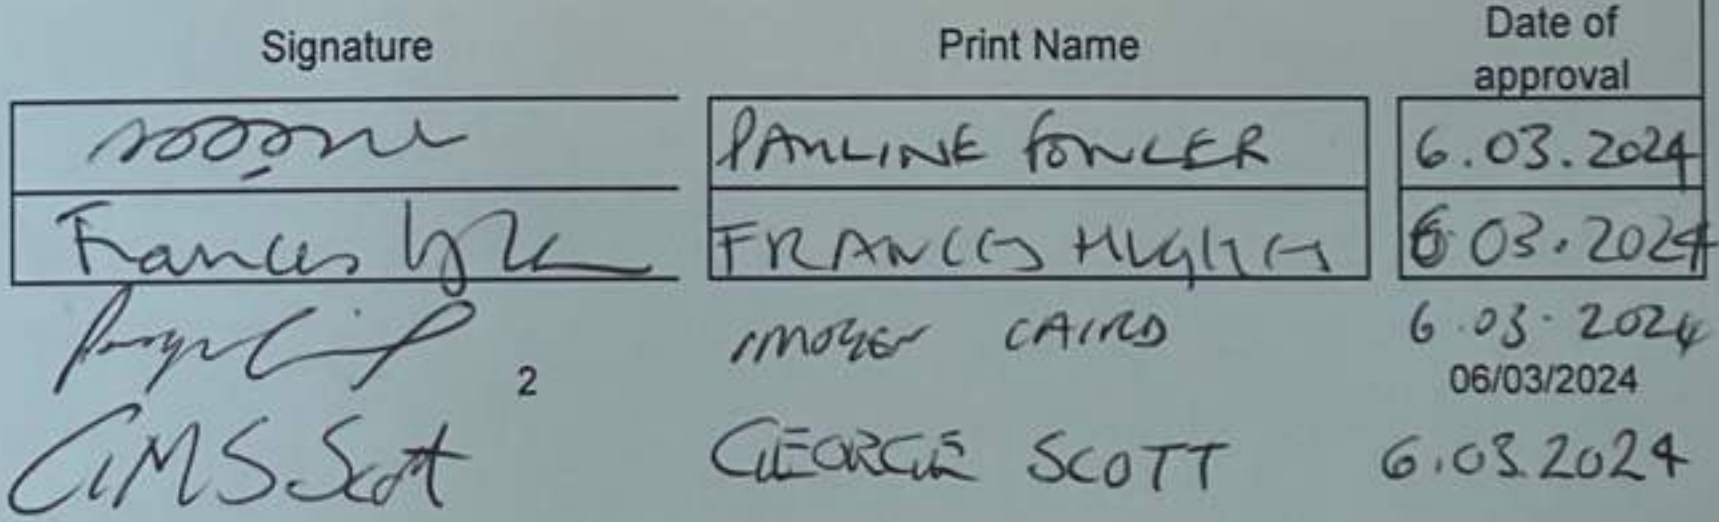 Signature Print Name Date of
approval
PAULINE FOWLER 6.03.2024
Frances FRANCES HUGHES 6 03.2024
IMOGEN CAIRD 6.03.2024
2 06/03/2024
GMS Scott GEORGE SCOTT 6.03.2024